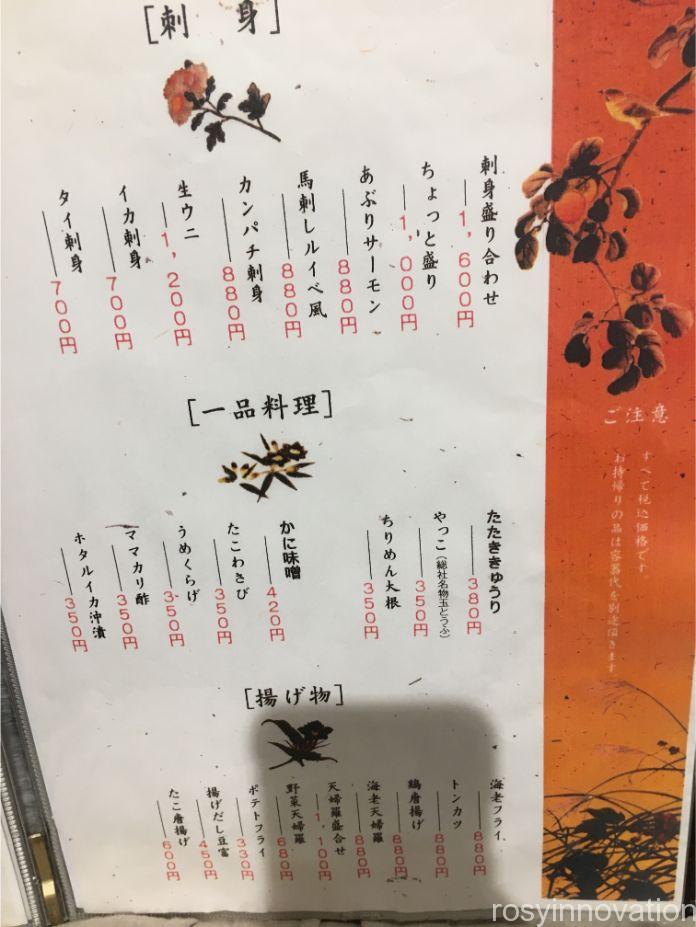 [刺身]
刺身盛り合わせ 1,600円
ちょっと盛り 1,000円
あぶりサーモン 880円
馬刺しルイベ風 880円
カンパチ刺身 880円
生ウニ 1,200円
イカ刺身 700円
タイ刺身 700円
[一品料理]
たたききゅうり 380円
やっこ(総社名物玉とうふ) 350円
ちりめん大根 350円
かに味噌 420円
たこわさび 350円
うめくらげ 350円
ママカリ酢 350円
ホタルイカ沖漬 350円
[揚げ物]
海老フライ 880円
トンカツ 880円
鶏唐揚げ 880円
海老天婦羅 880円
天婦羅盛合せ 1,100円
野菜天婦羅 680円
ポテトフライ 330円
揚げだし豆富 450円
たこ唐揚げ 600円
ご注意
すべて税込価格です。
お持帰りの品は容器代を別途頂きます。
rosyinnovation